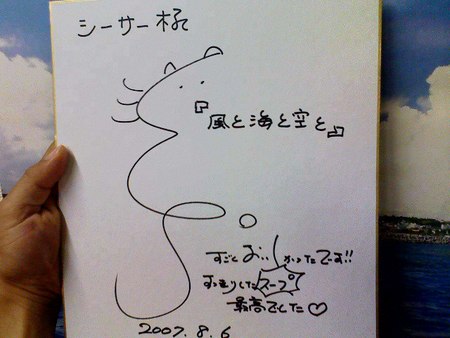 シーサー極
『風と海と空と』
すごく お、、しかったです!!
すっきりした スープ
最高でした♡
2007.8.6